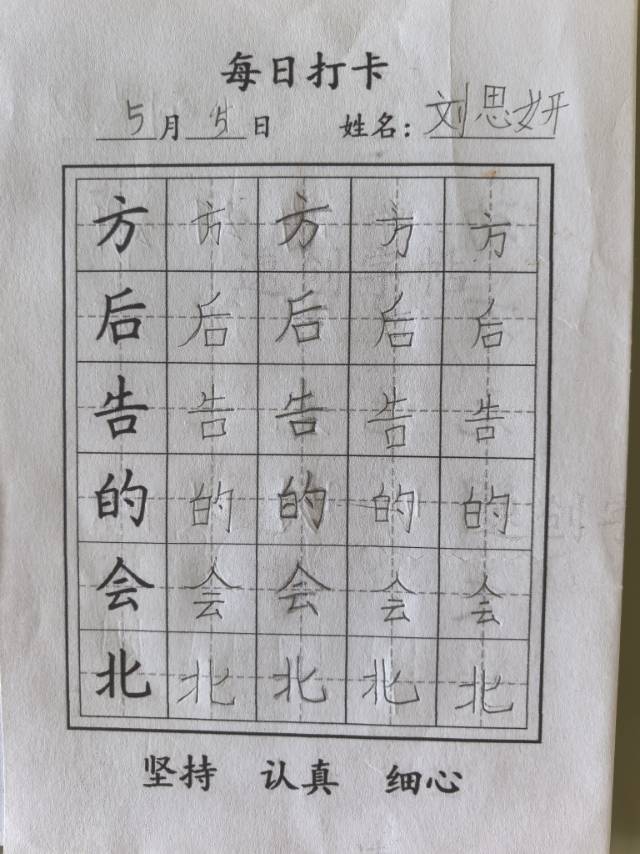 每日打卡
5月5日 姓名：刘思妍
方方方方方
后后后后后
告告告告告
的的的的的
会会会会会
北北北北北
坚持 认真 细心